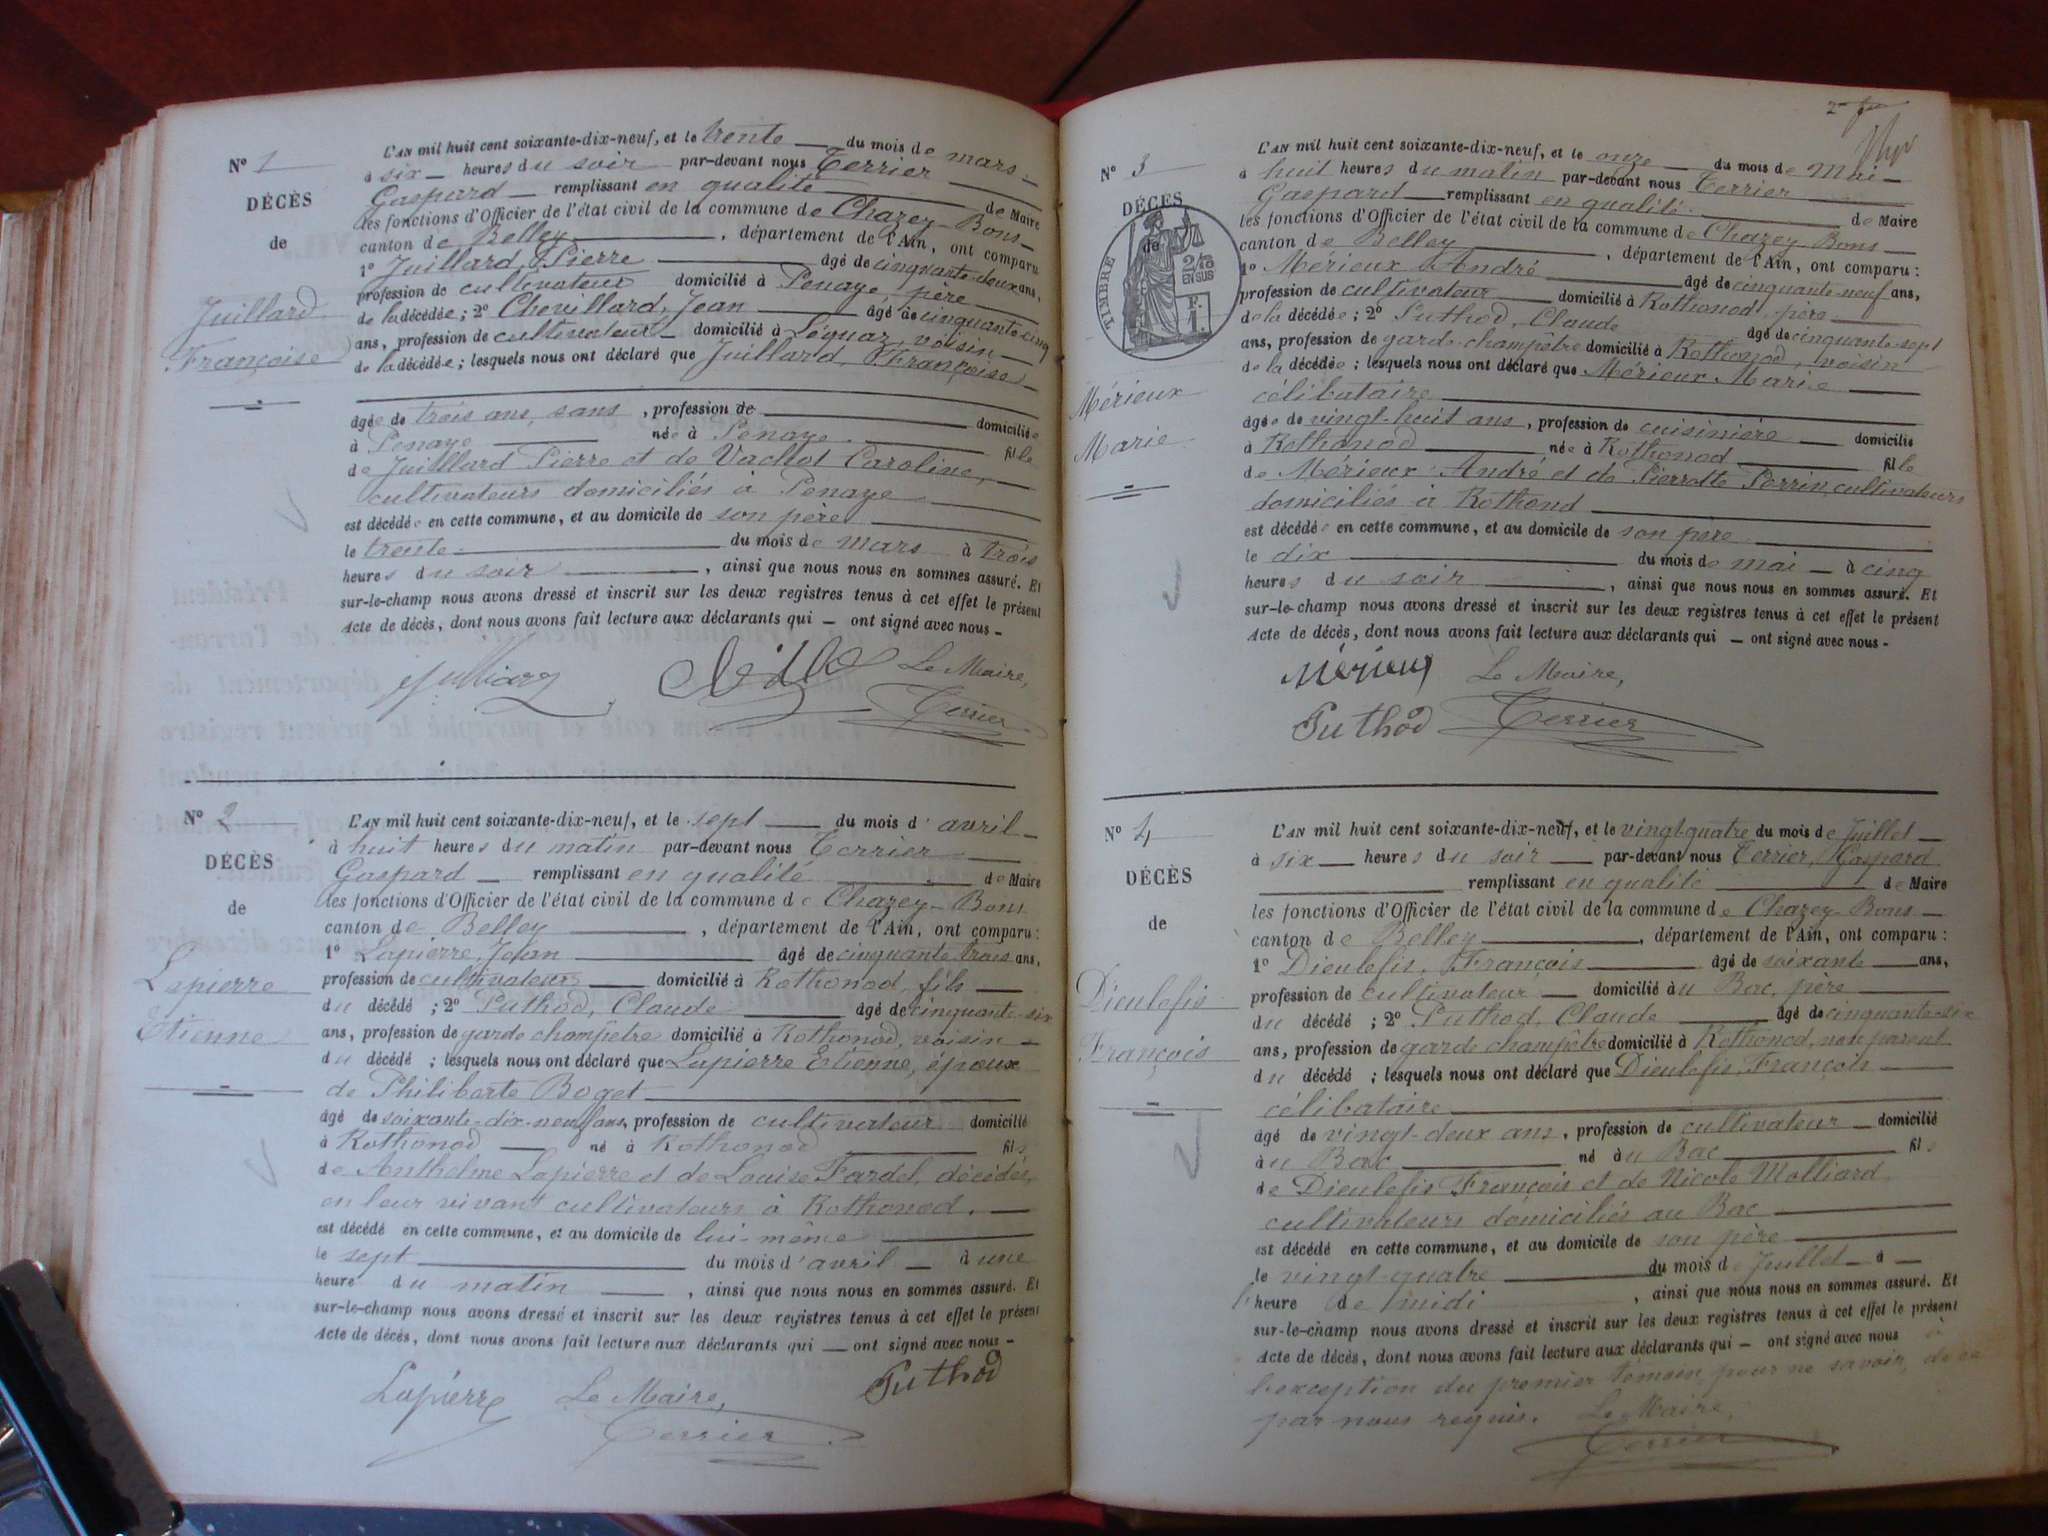 N° 1
DÉCÈS
de
Juillard
Françoise
L'AN mil huit cent soixante-dix-neuf, et le trente du mois de mars
à six heures du soir par-devant nous Terrier
Gaspard remplissant en qualité de Maire
les fonctions d'Officier de l'état civil de la commune de Chazey-Bons
canton de Belley, département de l'Ain, ont comparu
1° Juillard, Pierre âgé de cinquante-deux ans,
profession de cultivateur domicilié à Penaye, père
de la décédée; 2° Chevillard, Jean âgé de cinquante-cinq
ans, profession de cultivateur domicilié à voisin
de la décédée; lesquels nous ont déclaré que Juillard, Françoise
âgée de trois ans, sans, profession de domiciliée
à Penaye née à Penaye fille
de Juillard Pierre et de Vachot Caroline,
cultivateurs domiciliés à Penaye
est décédée en cette commune, et au domicile de son père
le trente du mois de mars à trois
heures du soir, ainsi que nous nous en sommes assuré. Et
sur-le-champ nous avons dressé et inscrit sur les deux registres tenus à cet effet le présent
Acte de décès, dont nous avons fait lecture aux déclarants qui — ont signé avec nous -
Le Maire,
Terrier
N° 2
DÉCÈS
de
Lapierre
Etienne
L'AN mil huit cent soixante-dix-neuf, et le sept du mois d'avril
à huit heures du matin par-devant nous Terrier
Gaspard remplissant en qualité de Maire
les fonctions d'Officier de l'état civil de la commune de Chazey-Bons
canton de Belley, département de l'Ain, ont comparu :
1° Lapierre, Jean âgé de cinquante trois ans,
profession de cultivateur domicilié à Rothonod, fils
du décédé; 2° Puthod, Claude âgé de cinquante-six
ans, profession de garde champêtre domicilié à Rothonod, voisin
du décédé; lesquels nous ont déclaré que Lapierre Etienne, époux
de Philiberte Boget
âgé de soixante-dix-neuf ans, profession de cultivateur domicilié
à Rothonod né à Rothonod fils
de Anthelme Lapierre et de Louise Fardel, décédés,
en leur vivant cultivateurs à Rothonod.
est décédé en cette commune, et au domicile de lui-même
le sept du mois d'avril à une
heure du matin, ainsi que nous nous en sommes assuré. Et
sur-le-champ nous avons dressé et inscrit sur les deux registres tenus à cet effet le présent
Acte de décès, dont nous avons fait lecture aux déclarants qui — ont signé avec nous -
Lapierre Le Maire, Puthod
Terrier
N° 3
DÉCÈS
de
TIMBRE
2/10
EN SUS
F.
1.
Mérieux
Marie
L'AN mil huit cent soixante-dix-neuf, et le onze du mois de Mai
à huit heures du matin par-devant nous Terrier
Gaspard remplissant en qualité de Maire
les fonctions d'Officier de l'état civil de la commune de Chazey-Bons
canton de Belley, département de l'Ain, ont comparu :
1° Mérieux André âgé de cinquante-neuf ans,
profession de cultivateur domicilié à Rothonod, père
de la décédée; 2° Puthod, Claude âgé de cinquante-sept
ans, profession de garde-champêtre domicilié à Rothonod, voisin
de la décédée; lesquels nous ont déclaré que Mérieux Marie
célibataire
âgée de vingt-huit ans, profession de cuisinière domicilié
à Rothonod née à Rothonod fille
de Mérieux André et de Pierrette Perrin, cultivateurs
domiciliés à Rothond
est décédée en cette commune, et au domicile de son père
le dix du mois de mai à cinq
heures du soir, ainsi que nous nous en sommes assuré. Et
sur-le-champ nous avons dressé et inscrit sur les deux registres tenus à cet effet le présent
Acte de décès, dont nous avons fait lecture aux déclarants qui — ont signé avec nous -
Mérieux Le Maire,
Puthod Terrier
N° 4
DÉCÈS
de
Dieulefis
François
L'AN mil huit cent soixante-dix-neuf, et le vingt-quatre du mois de Juillet
à six heures du soir par-devant nous Terrier, Gaspard
remplissant en qualité de Maire
les fonctions d'Officier de l'état civil de la commune de Chazey-Bons
canton de Belley, département de l'Ain, ont comparu :
1° Dieulefis, François âgé de soixante ans,
profession de cultivateur domicilié au Bac, père
du décédé; 2° Puthod, Claude âgé de cinquante-six
ans, profession de garde champêtre domicilié à Rothonod, non parent
du décédé; lesquels nous ont déclaré que Dieulefis, François
célibataire
âgé de vingt-deux ans, profession de cultivateur domicilié
au Bac né au Bac fils
de Dieulefis François et de Nicole Molliard
cultivateurs domiciliés au Bac
est décédé en cette commune, et au domicile de son père
le vingt-quatre du mois de Juillet à
heure de midi, ainsi que nous nous en sommes assuré. Et
sur-le-champ nous avons dressé et inscrit sur les deux registres tenus à cet effet le présent
Acte de décès, dont nous avons fait lecture aux déclarants qui — ont signé avec nous à
l'exception du premier témoin, pour ne savoir, de ce
par nous requis. Le Maire,
Terrier